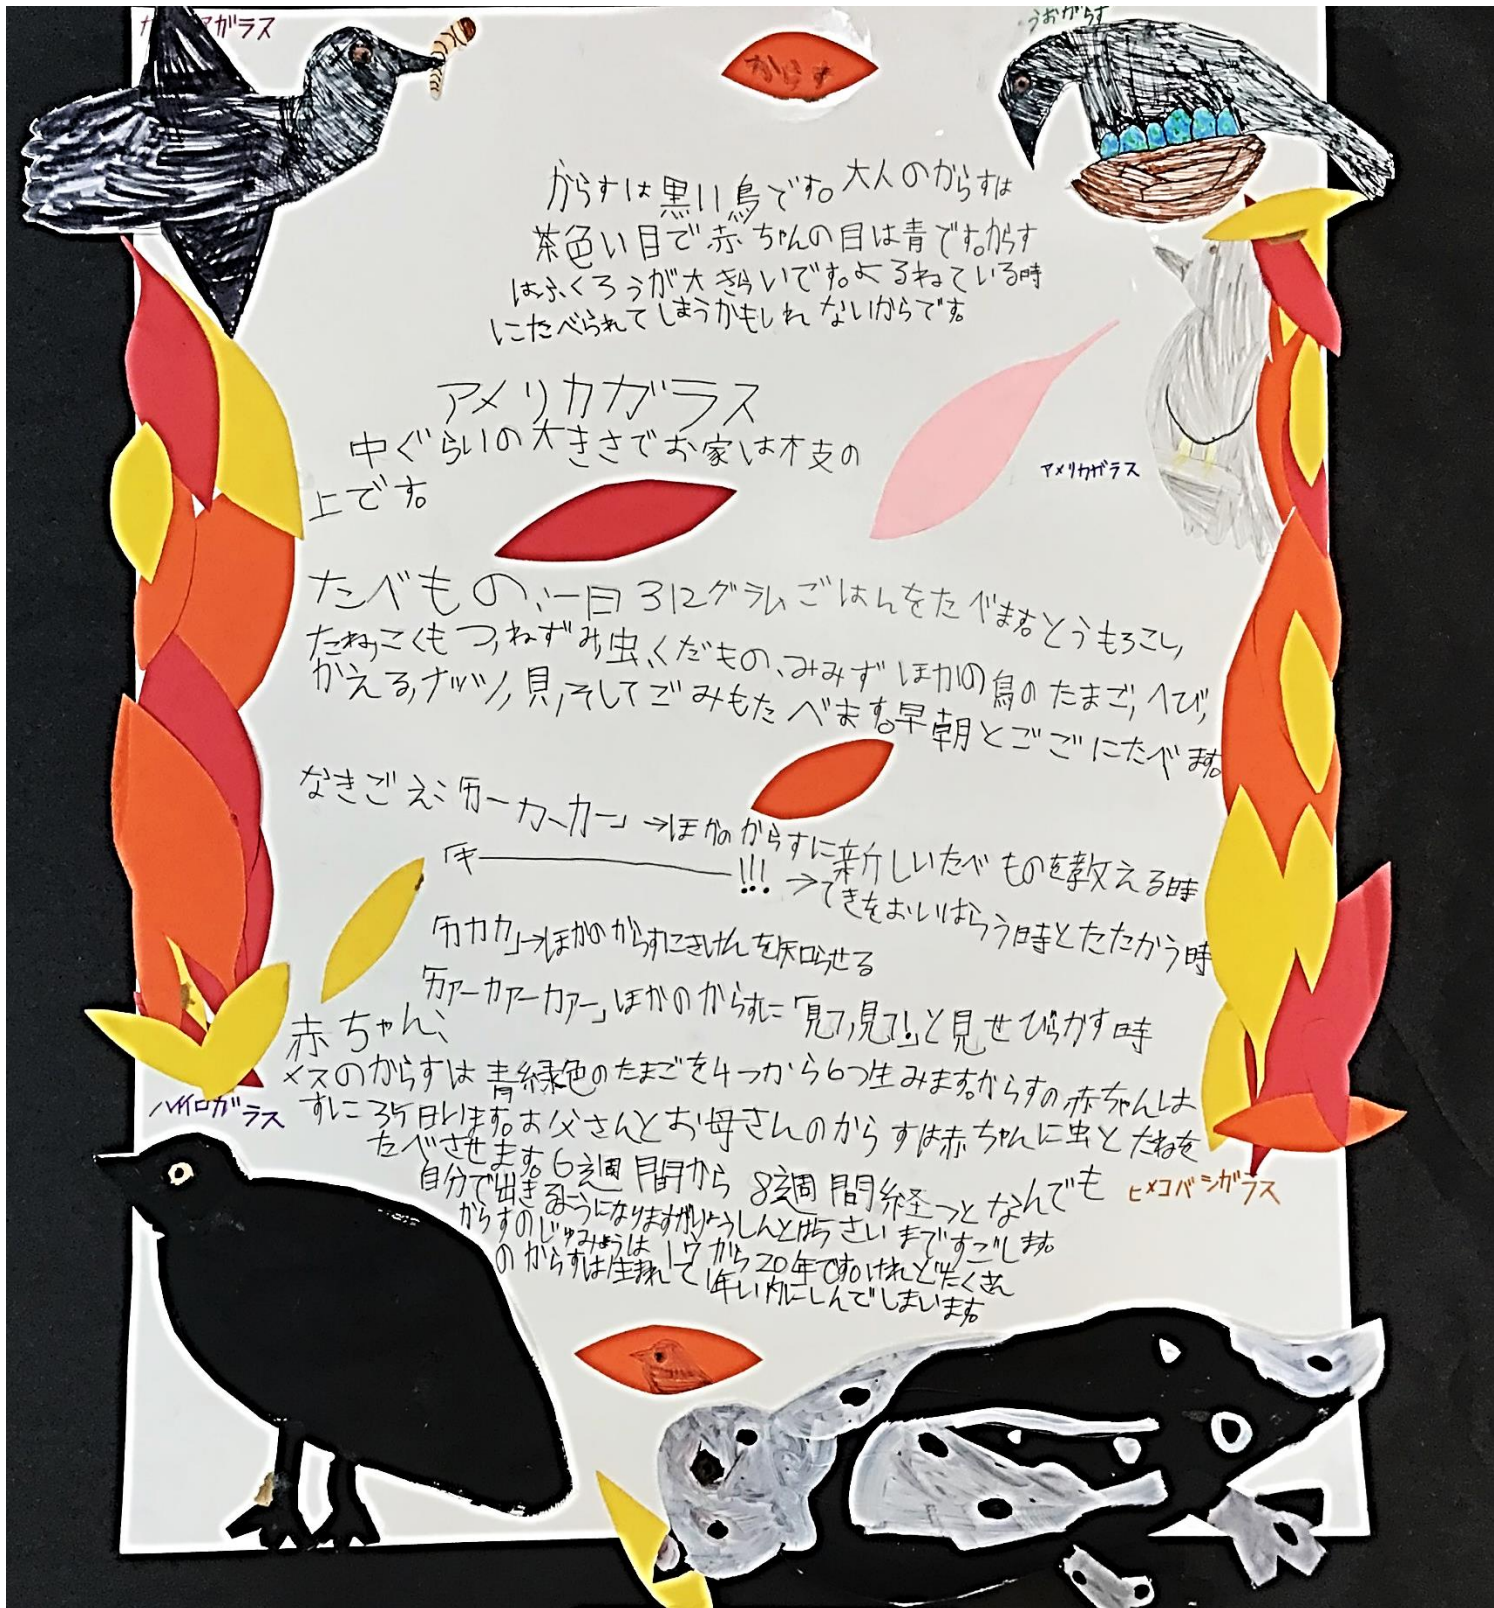 ガラス
うおがらす
からす
からすは黒い鳥です。大人のからすは
茶色い目で赤ちゃんの目は青です。からす
はふくろうが大きらいです。よるねている時
にたべられてしまうかもしれないからです。
アメリカガラス
中ぐらいの大きさでお家は木支の
上です。
アメリカガラス
たべもの、一日312グラムごはんをたべます。とうもろこし,
たね,こくもつ,ねずみ,虫、くだもの、みみず ほかの鳥のたまご,へび,
かえる,ナッツ,貝,そしてごみもたべます。早朝とごごにたべます。
なきごえ:「カー カー カー」→ほかのからすに新しいたべものを教える時
「キー!!!→てきをおいはらう時とたたかう時
「カカカ」→ほかのからすにきけんを知らせる
「カァーカァーカァー」ほかのからすに「見て,見て!」と見せびらかす時
赤ちゃん:
メスのからすは青緑色のたまごを4つから6つ生みます。からすの赤ちゃんは
すに35日います。お父さんとお母さんのからすは赤ちゃんに虫とたねを
たべさせます。6週間から8週間経つとなんでも
自分で出きるようになりますがりょうしんと さいまですごします。
からすのじゅみょうは17から20年です。けれどたくさん
のからすは生まれて1年い内にしんでしまいます。
ハイロガラス
ヒメコバシガラス